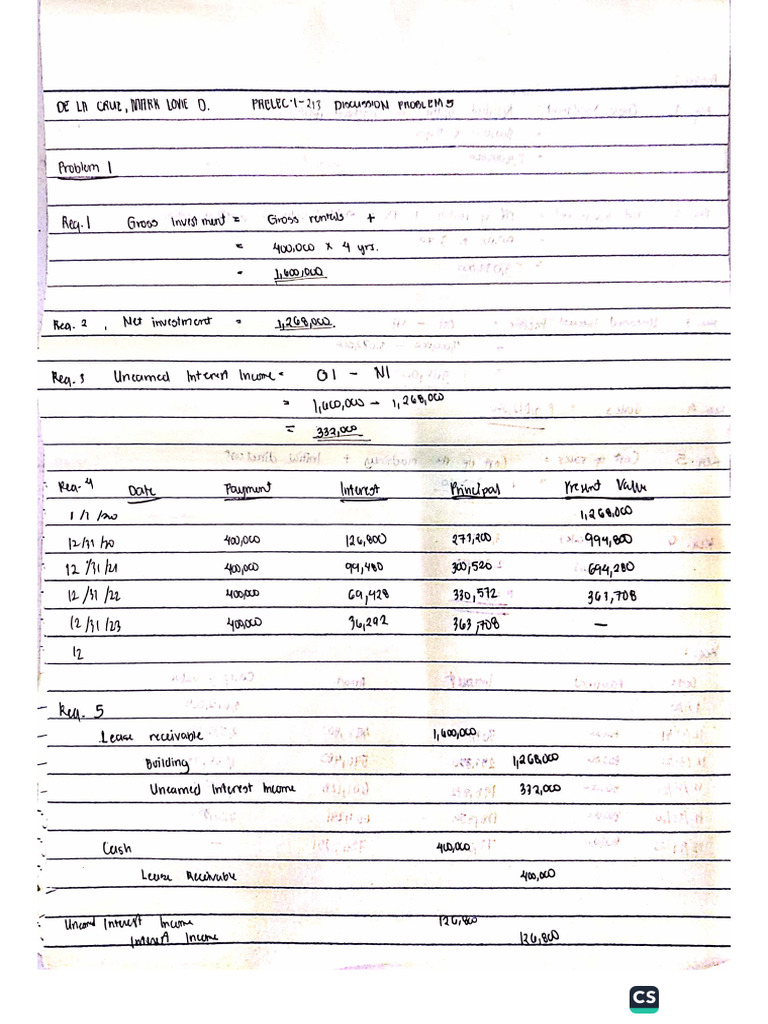 DE LA CRUZ, MARK LOVIE D. PRELEC-1-213 DISCUSSION PROBLEMS
Problem 1
Req. 1 Gross Investment = Gross rentals +
= 400,000 x 4 yrs.
= 1,600,000
Req. 2, Net investment = 1,268,000
Req. 3 Unearned Interest Income = GI - NI
= 1,600,000 - 1,268,000
= 332,000
Req. 4 Date Payment Interest Principal Present Value
1/1/20 1,268,000
12/31/20 400,000 126,800 273,200 994,800
12/31/21 400,000 99,480 300,520 694,280
12/31/22 400,000 69,428 330,572 363,708
12/31/23 400,000 36,292 363,708 —
12
Req. 5
Lease receivable 1,600,000
Building 1,268,000
Unearned Interest Income 332,000
Cash 400,000
Lease Receivable 400,000
Interest Income 126,800
Interest Income 126,800
CS